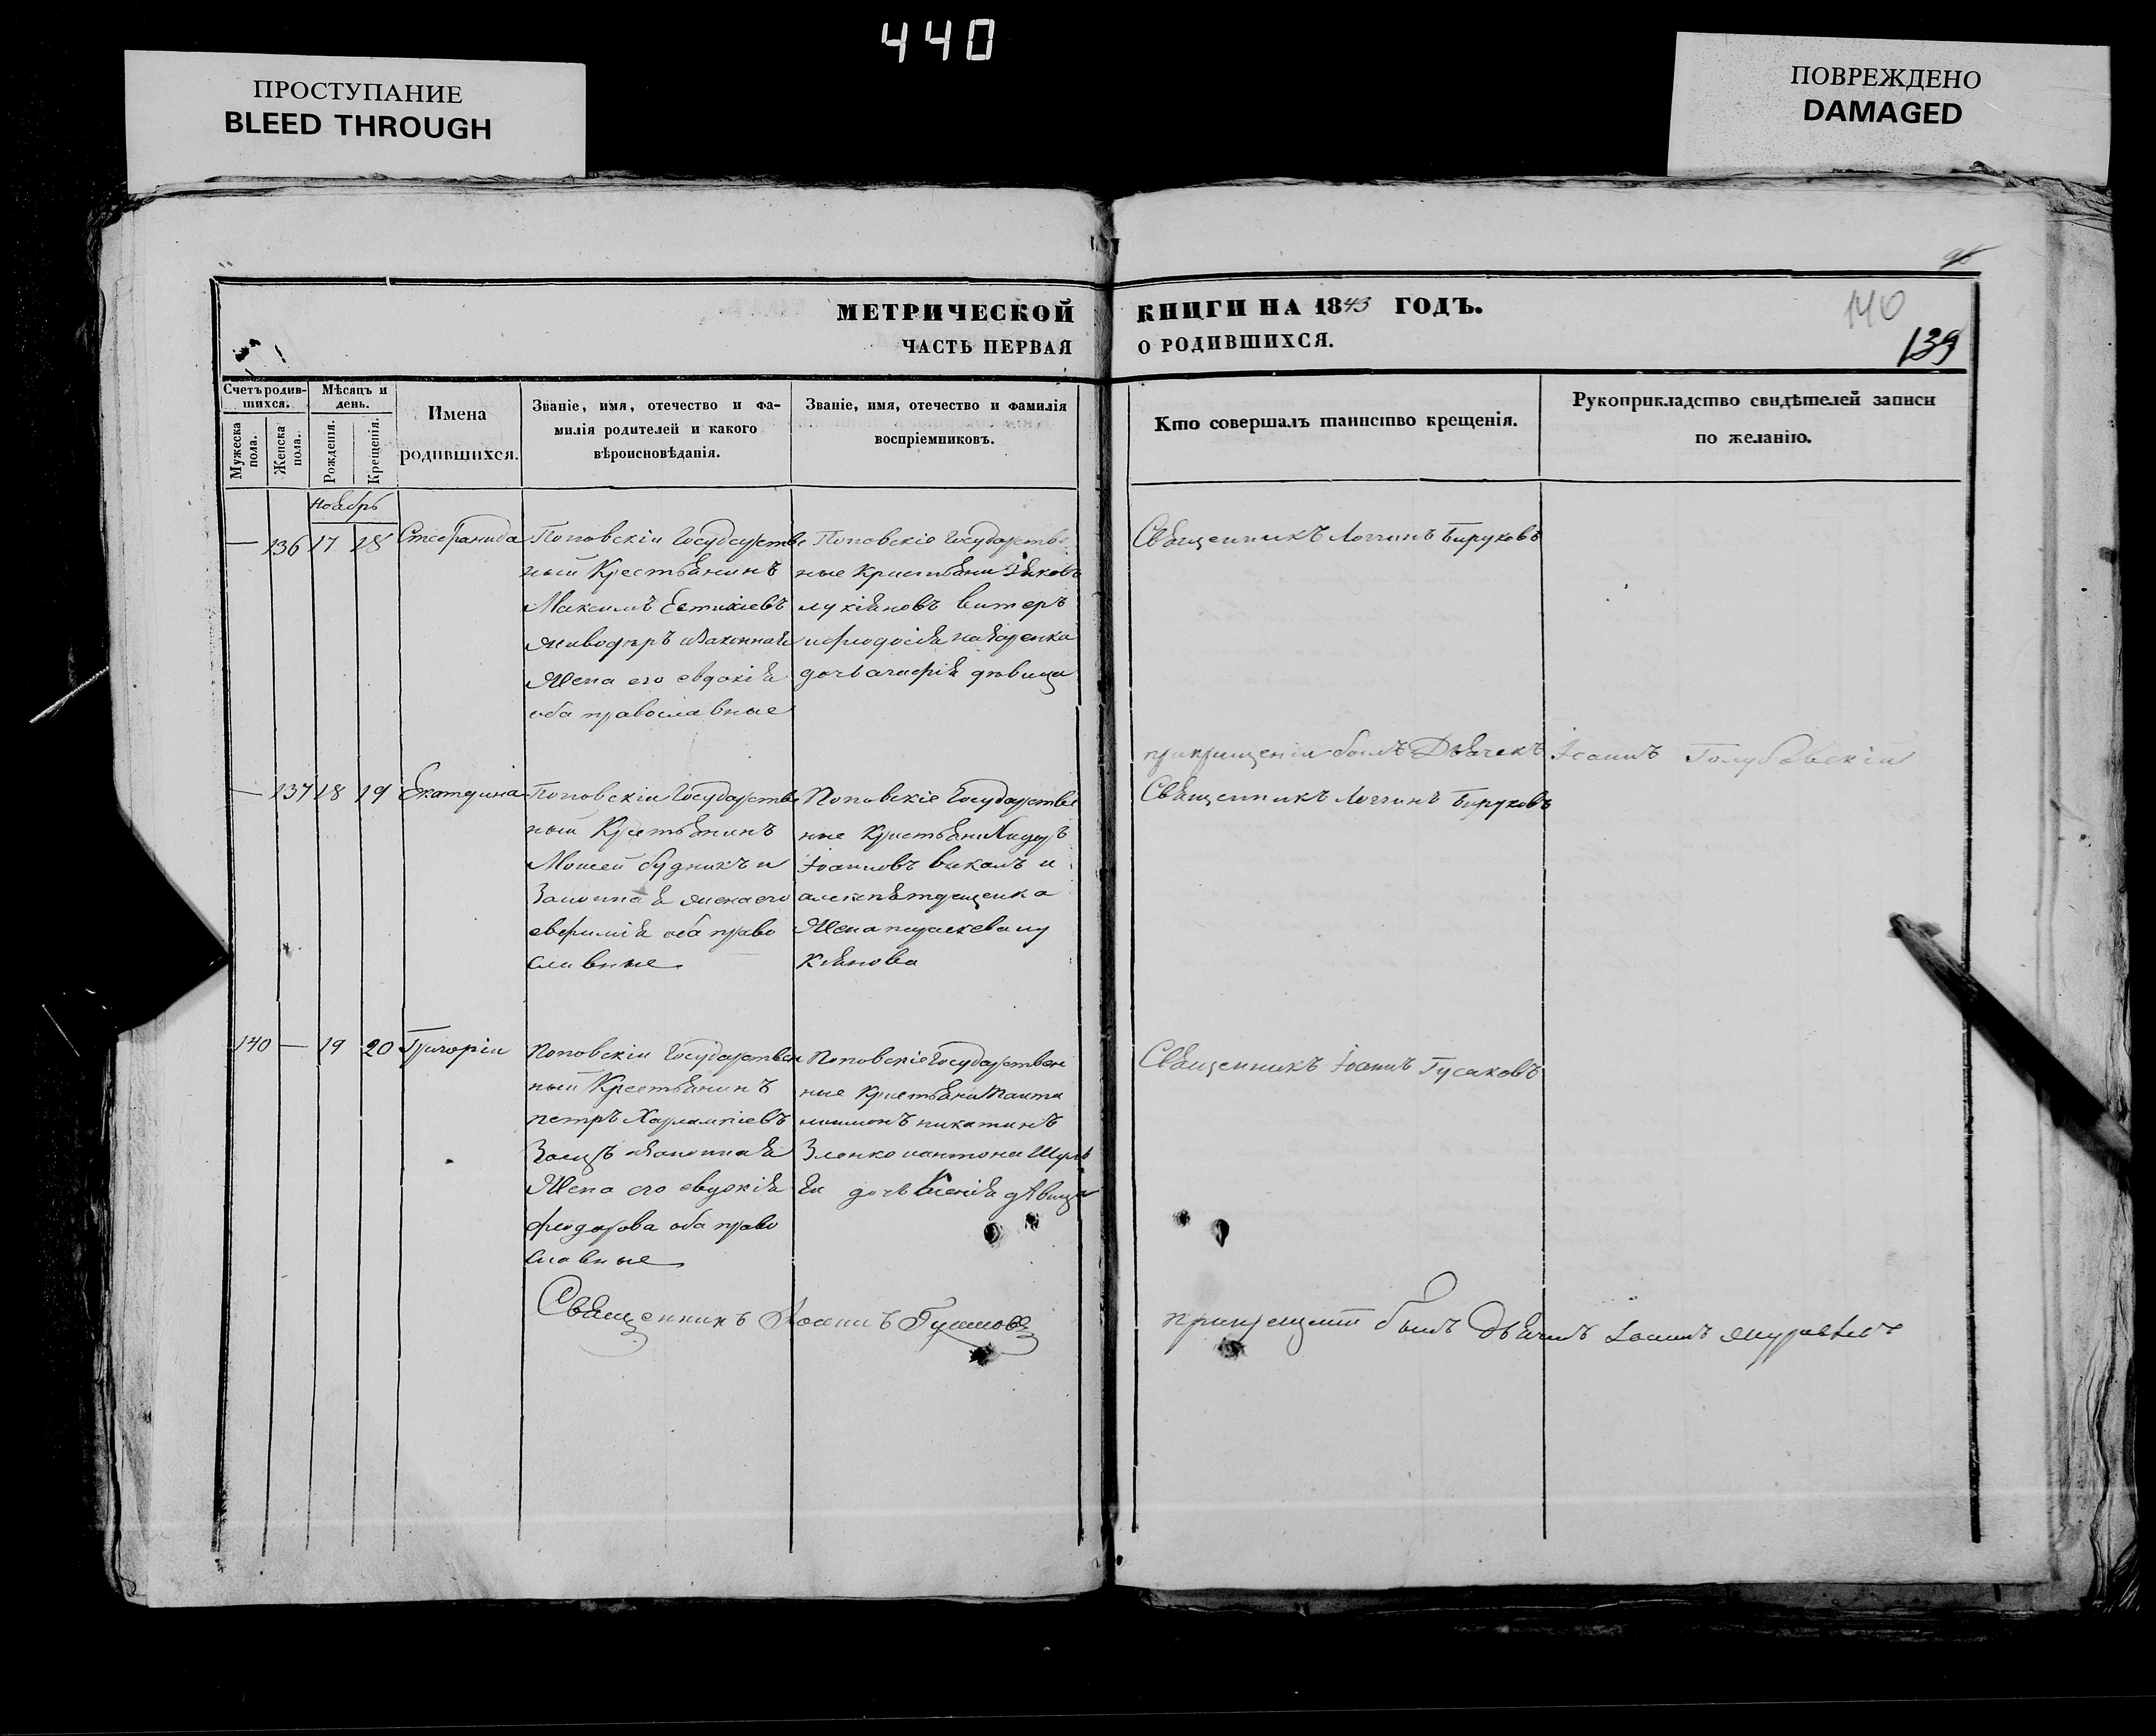 440
ПРОСТУПАНИЕ
BLEED THROUGH
ПОВРЕЖДЕНО
DAMAGED
МЕТРИЧЕСКОЙ КНИГИ НА 1843 ГОДЪ.
140
ЧАСТЬ ПЕРВАЯ О РОДИВШИХСЯ.
139
Счетъ родив-
шихся.
Мужеска
пола.
Женска
пола.
Мѣсяцъ и
день.
Рожденія.
Крещенія.
Имена
родившихся.
Званіе, имя, отечество и фа-
милія родителей и какого
вѣроисповѣданія.
Званіе, имя, отечество и фамилія
воспріемниковъ.
Кто совершалъ таинство крещенія.
Рукоприкладство свидѣтелей записи
по желанію.
Ноябрь
— 136 17 18 Стефанида
Поповскіи Государстве
ный Крестьянинъ
Максимъ
Жена его евдокія
оба православные
Поповскіе Государстве
ные Крестьяни
лукіяновъ
дочь девица
Священникъ Логгинъ Бируковъ
прикрещеніи былъ Дьячекъ Іоаннъ Голубовскіи
— 137 18 19 Екатерина
Поповскіи Государстве
ный Крестьянинъ
Моисей Будникъ и
Законная жена его
евфимія оба право
славные
Поповскіе Государстве
ные Крестьяни
Іоанновъ и
Жена параскева лу
кіянова
Священникъ Логгинъ Бируковъ
140 — 19 20 Григоріи
Поповскіи Государствен
ный Крестьянинъ
петръ Харлампіевъ
Заецъ изаконная
Жена его евдокія
феодорова оба право
славные
Поповскіе Государствен
ные Крестьяни Панте
лиимонъ никитинъ
Зленко иантона
дочь Ксенія дѣвица
Священникъ Іоаннъ Гусаковъ
Священникъ Іоаннъ
прикрещеніи былъ Дьячекъ Іоаннъ